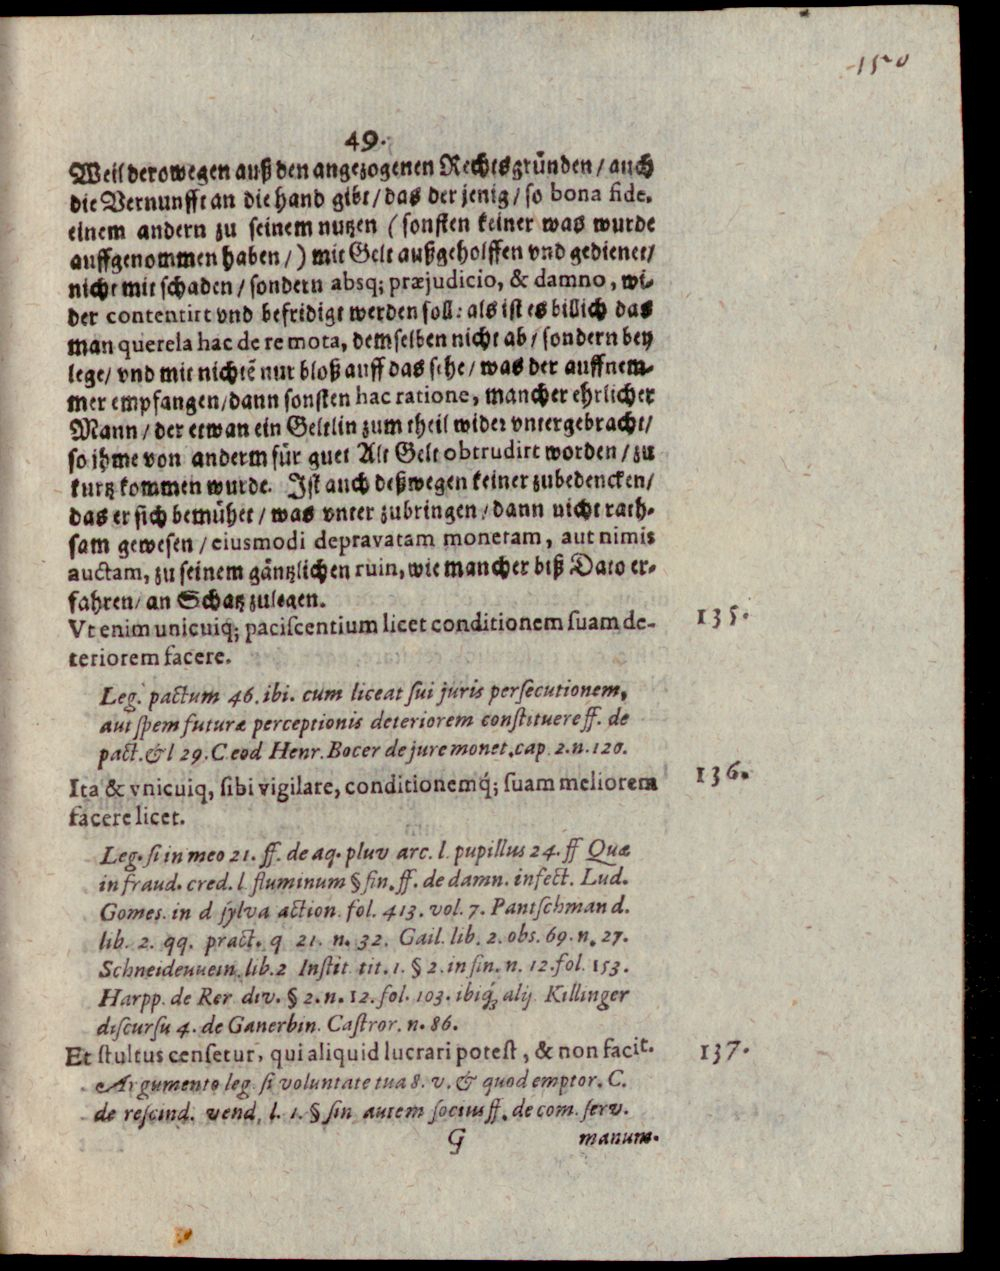 150
49.
Weil derowegen auß den angezogenen Rechtsgründen / auch
die Vernunfft an die hand gibt / das der jenig / so bona fide,
einem andern zu seinem nutzen ( sonsten keiner was wurde
auffgenommen haben / ) mit Gelt außgeholffen vnd gedienet /
nicht mit schaden / sondern absq; præjudicio, & damno, wi-
der contentirt vnd befridigt werden soll: als ist es billich das
man querela hac de re mota, demselben nicht ab / sondern bey
lege / vnd mit nichtẽ nur bloß auff das sehe / was der auffnem-
mer empfangen / dann sonsten hac ratione, mancher ehrlicher
Mann / der etwan ein Geltlin zum theil wider vntergebracht /
so ihme von anderm für guet Alt Gelt obtrudirt worden / zu
kurtz kommen wurde. Ist auch deßwegen keiner zubedencken /
das er sich bemühet / was vnter zubringen / dann nicht rath-
sam gewesen / eiusmodi depravatam monetam, aut nimis
auctam, zu seinem gäntzlichen ruin, wie mancher biß Dato er-
fahren / an Schatz zulegen.
Vt enim unicuiq; paciscentium licet conditionem suam de-
teriorem facere.
135.
Leg. pactum 46. ibi. cum liceat sui juris persecutionem,
aut spem futuræ perceptionis deteriorem constituere ff. de
pact. & l 29. C eod Henr. Bocer de jure monet. cap. 2. n. 120.
Ita & vnicuiq, sibi vigilare, conditionemq́; suam meliorem
facere licet.
136.
Leg. si in meo 21. ff. de aq. pluv arc. l. pupillus 24. ff Quæ
in fraud. cred. l fluminum § fin. ff. de damn. infect. Lud.
Gomes. in d sylva action. fol. 413. vol. 7. Pantschman d.
lib. 2. qq. pract. q 21. n. 32. Gail. lib. 2. obs. 69. n. 27.
Schneidevvein. lib. 2 Instit. tit. 1. § 2. in fin. n. 12. fol. 153.
Harpp. de Rer. div. § 2. n. 12. fol. 103. ibiq́; alij Killinger
discursu 4. de Ganerbin. Castror. n. 86.
Et stultus censetur, qui aliquid lucrari potest, & non facit.
137.
Argumento leg. si voluntate tua 8. v. & quod emptor. C.
de rescind. vend, l. 1. § sin autem socius ff. de com. serv.
G manum.